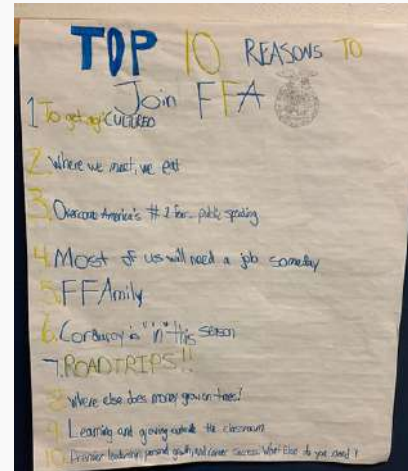 TOP 10 REASONS TO
Join FFA
1 To get "ag" CULTURED
2. Where we meet, we eat
3. Overcome America's # 1 fear... public
4. Most of us will need a job someday
5. FFAmily
6. Corduroy is "in" this season
7. ROADTRIPS!!
8. Where else does money grow on trees?
9. Learning and growing outside the classroom
10. Premier leadership, personal growth, and career success. What Else do you need?